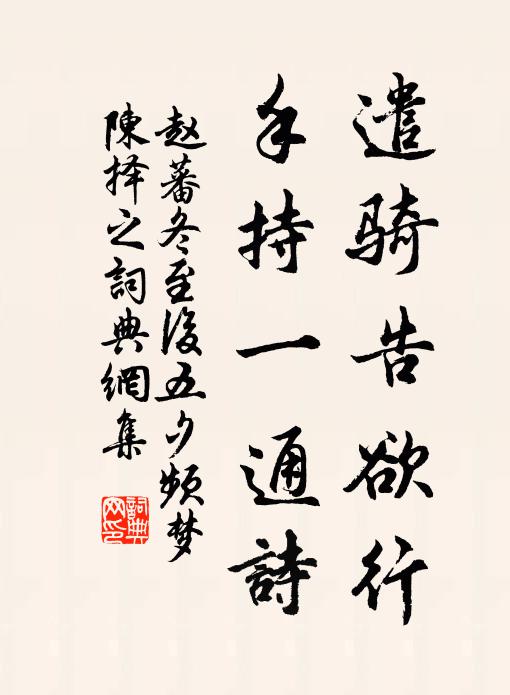 遣骑告欲行
手持一通詩
赵蕃冬至後五夕频梦
陳择之詞典網集
詞典网印